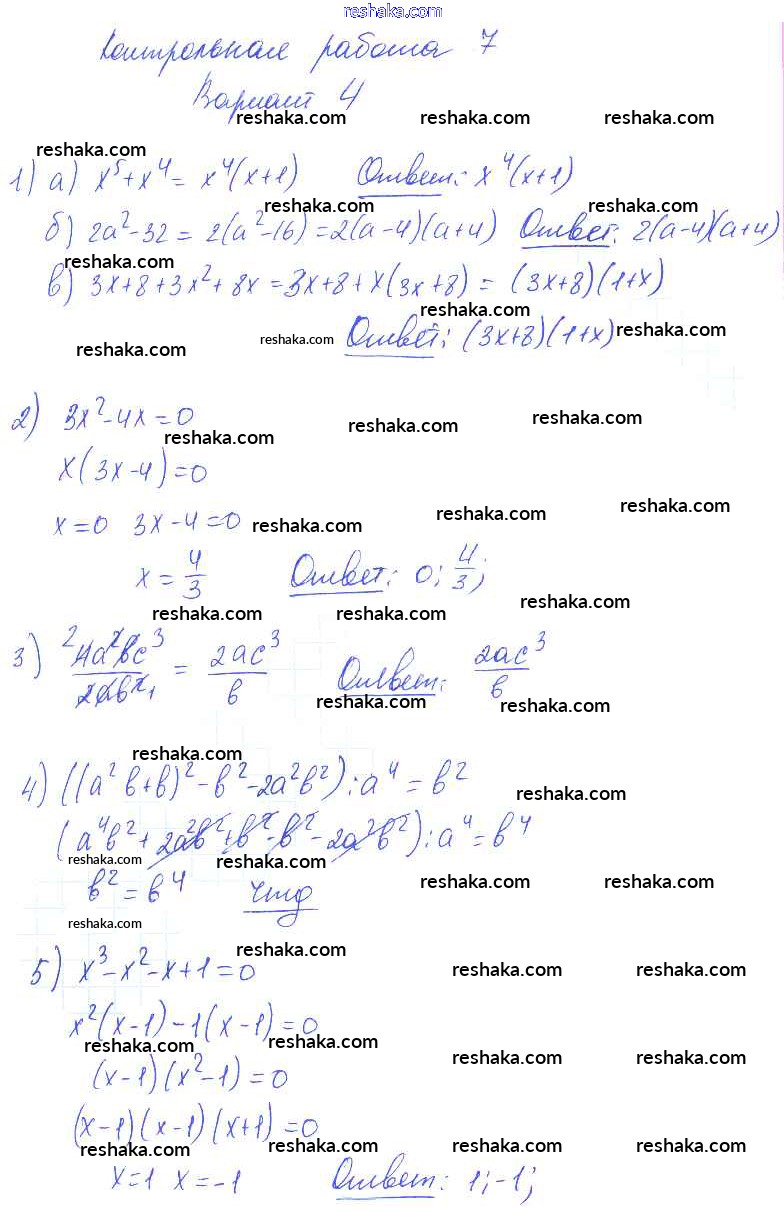 reshaka.com
Контрольная работа 7
Вариант 4
reshaka.com reshaka.com reshaka.com
reshaka.com
1) а) x⁵+x⁴= x⁴(x+1) Ответ: x⁴(x+1)
reshaka.com reshaka.com
б) 2a²-32 = 2(a²-16)=2(a-4)(a+4) Ответ: 2(a-4)(a+4)
reshaka.com
в) 3x+8+3x²+8x=3x+8+x(3x+8) = (3x+8)(1+x)
reshaka.com
Ответ: (3x+8)(1+x)
reshaka.com reshaka.com reshaka.com
2) 3x²-4x=0
reshaka.com reshaka.com reshaka.com
x(3x-4)=0
x=0 3x-4=0
reshaka.com reshaka.com reshaka.com
x = 4/3 Ответ: 0; 4/3;
reshaka.com reshaka.com reshaka.com
3) ²4a²bc³/2ab²₁ = 2ac³/b Ответ: 2ac³/b
reshaka.com reshaka.com
reshaka.com
4) ((a²b+b)²-b²-2a²b²):a⁴=b²
reshaka.com
(a⁴b²+2a²b²+b²-b²-2a²b²):a⁴=b⁴
reshaka.com reshaka.com
b²=b⁴ чтд
reshaka.com reshaka.com
reshaka.com
reshaka.com
5) x³-x²-x+1=0
reshaka.com reshaka.com
x²(x-1)-1(x-1)=0
reshaka.com reshaka.com
(x-1)(x²-1)=0
reshaka.com reshaka.com
(x-1)(x-1)(x+1)=0
reshaka.com reshaka.com reshaka.com reshaka.com
x=1 x=-1 Ответ: 1;-1;